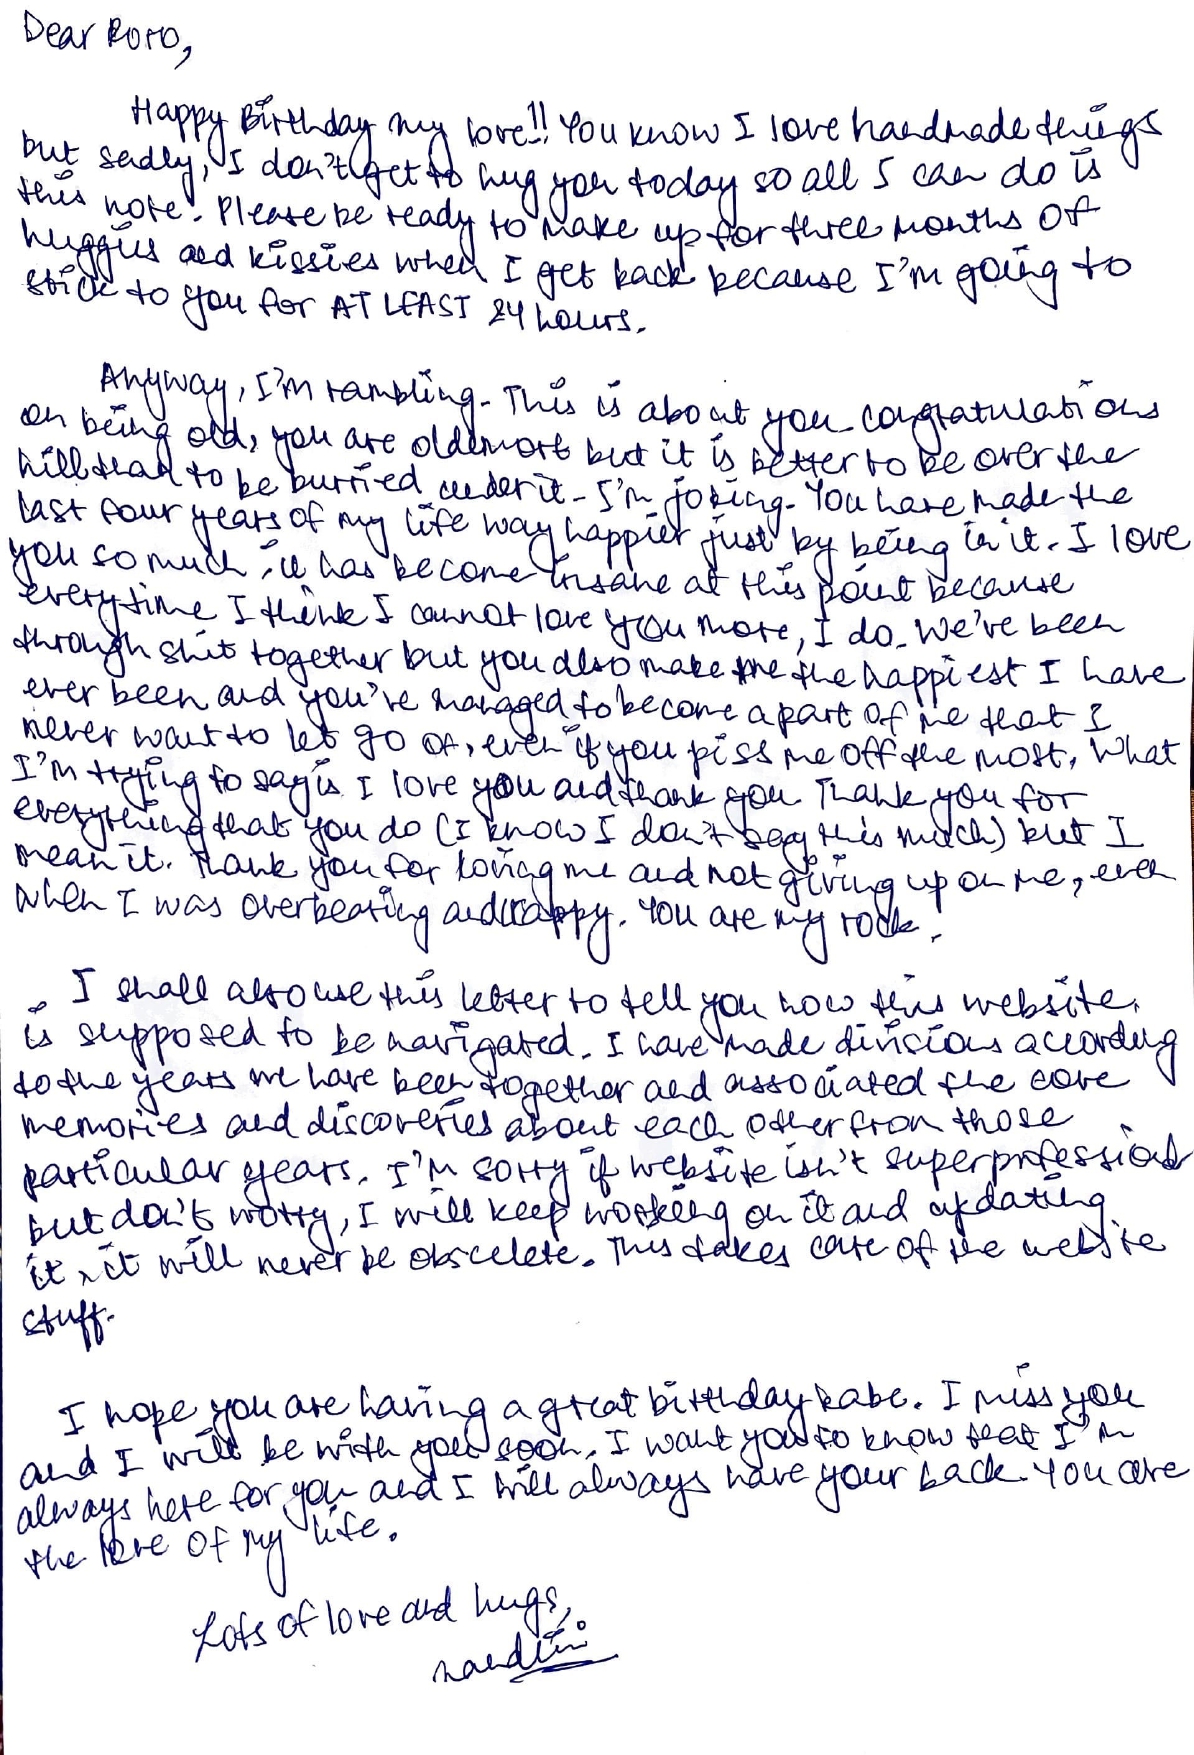 Dear Roro,
Happy Birthday my love!! You know I love handmade things
but sadly, I don't get to hug you today so all I can do is
this note. Please be ready to make up for three months of
huggies and kissies when I get back because I'm going to
stick to you for AT LEAST 24 hours.
Anyway, I'm rambling. This is about you congratulations
on being old, you are oldemort but it is better to be over the
hill than to be burried under it. I'm joking. You have made the
last four years of my life way happier just by being in it. I love
you so much, it has become insane at this point because
everytime I think I cannot love you more, I do. We've been
through shit together but you also make me the happiest I have
ever been and you've managed to become a part of me that I
never want to let go of, even if you piss me off the most. What
I'm trying to say is I love you and thank you. Thank you for
everything that you do (I know I don't say this much) but I
mean it. Thank you for loving me and not giving up on me, even
when I was overbearing and crappy. You are my rock!
I shall also use this letter to tell you how this website
is supposed to be navigated. I have made divisions according
to the years we have been together and associated the core
memories and discoveries about each other from those
particular years. I'm sorry if website isn't super professional
but don't worry, I will keep working on it and updating
it, it will never be obscelete. This takes care of the website
stuff.
I hope you are having a great birthday babe. I miss you
and I will be with you soon. I want you to know that I'm
always here for you and I will always have your back. You are
the love of my life.
Lots of love and hugs,
Nandini